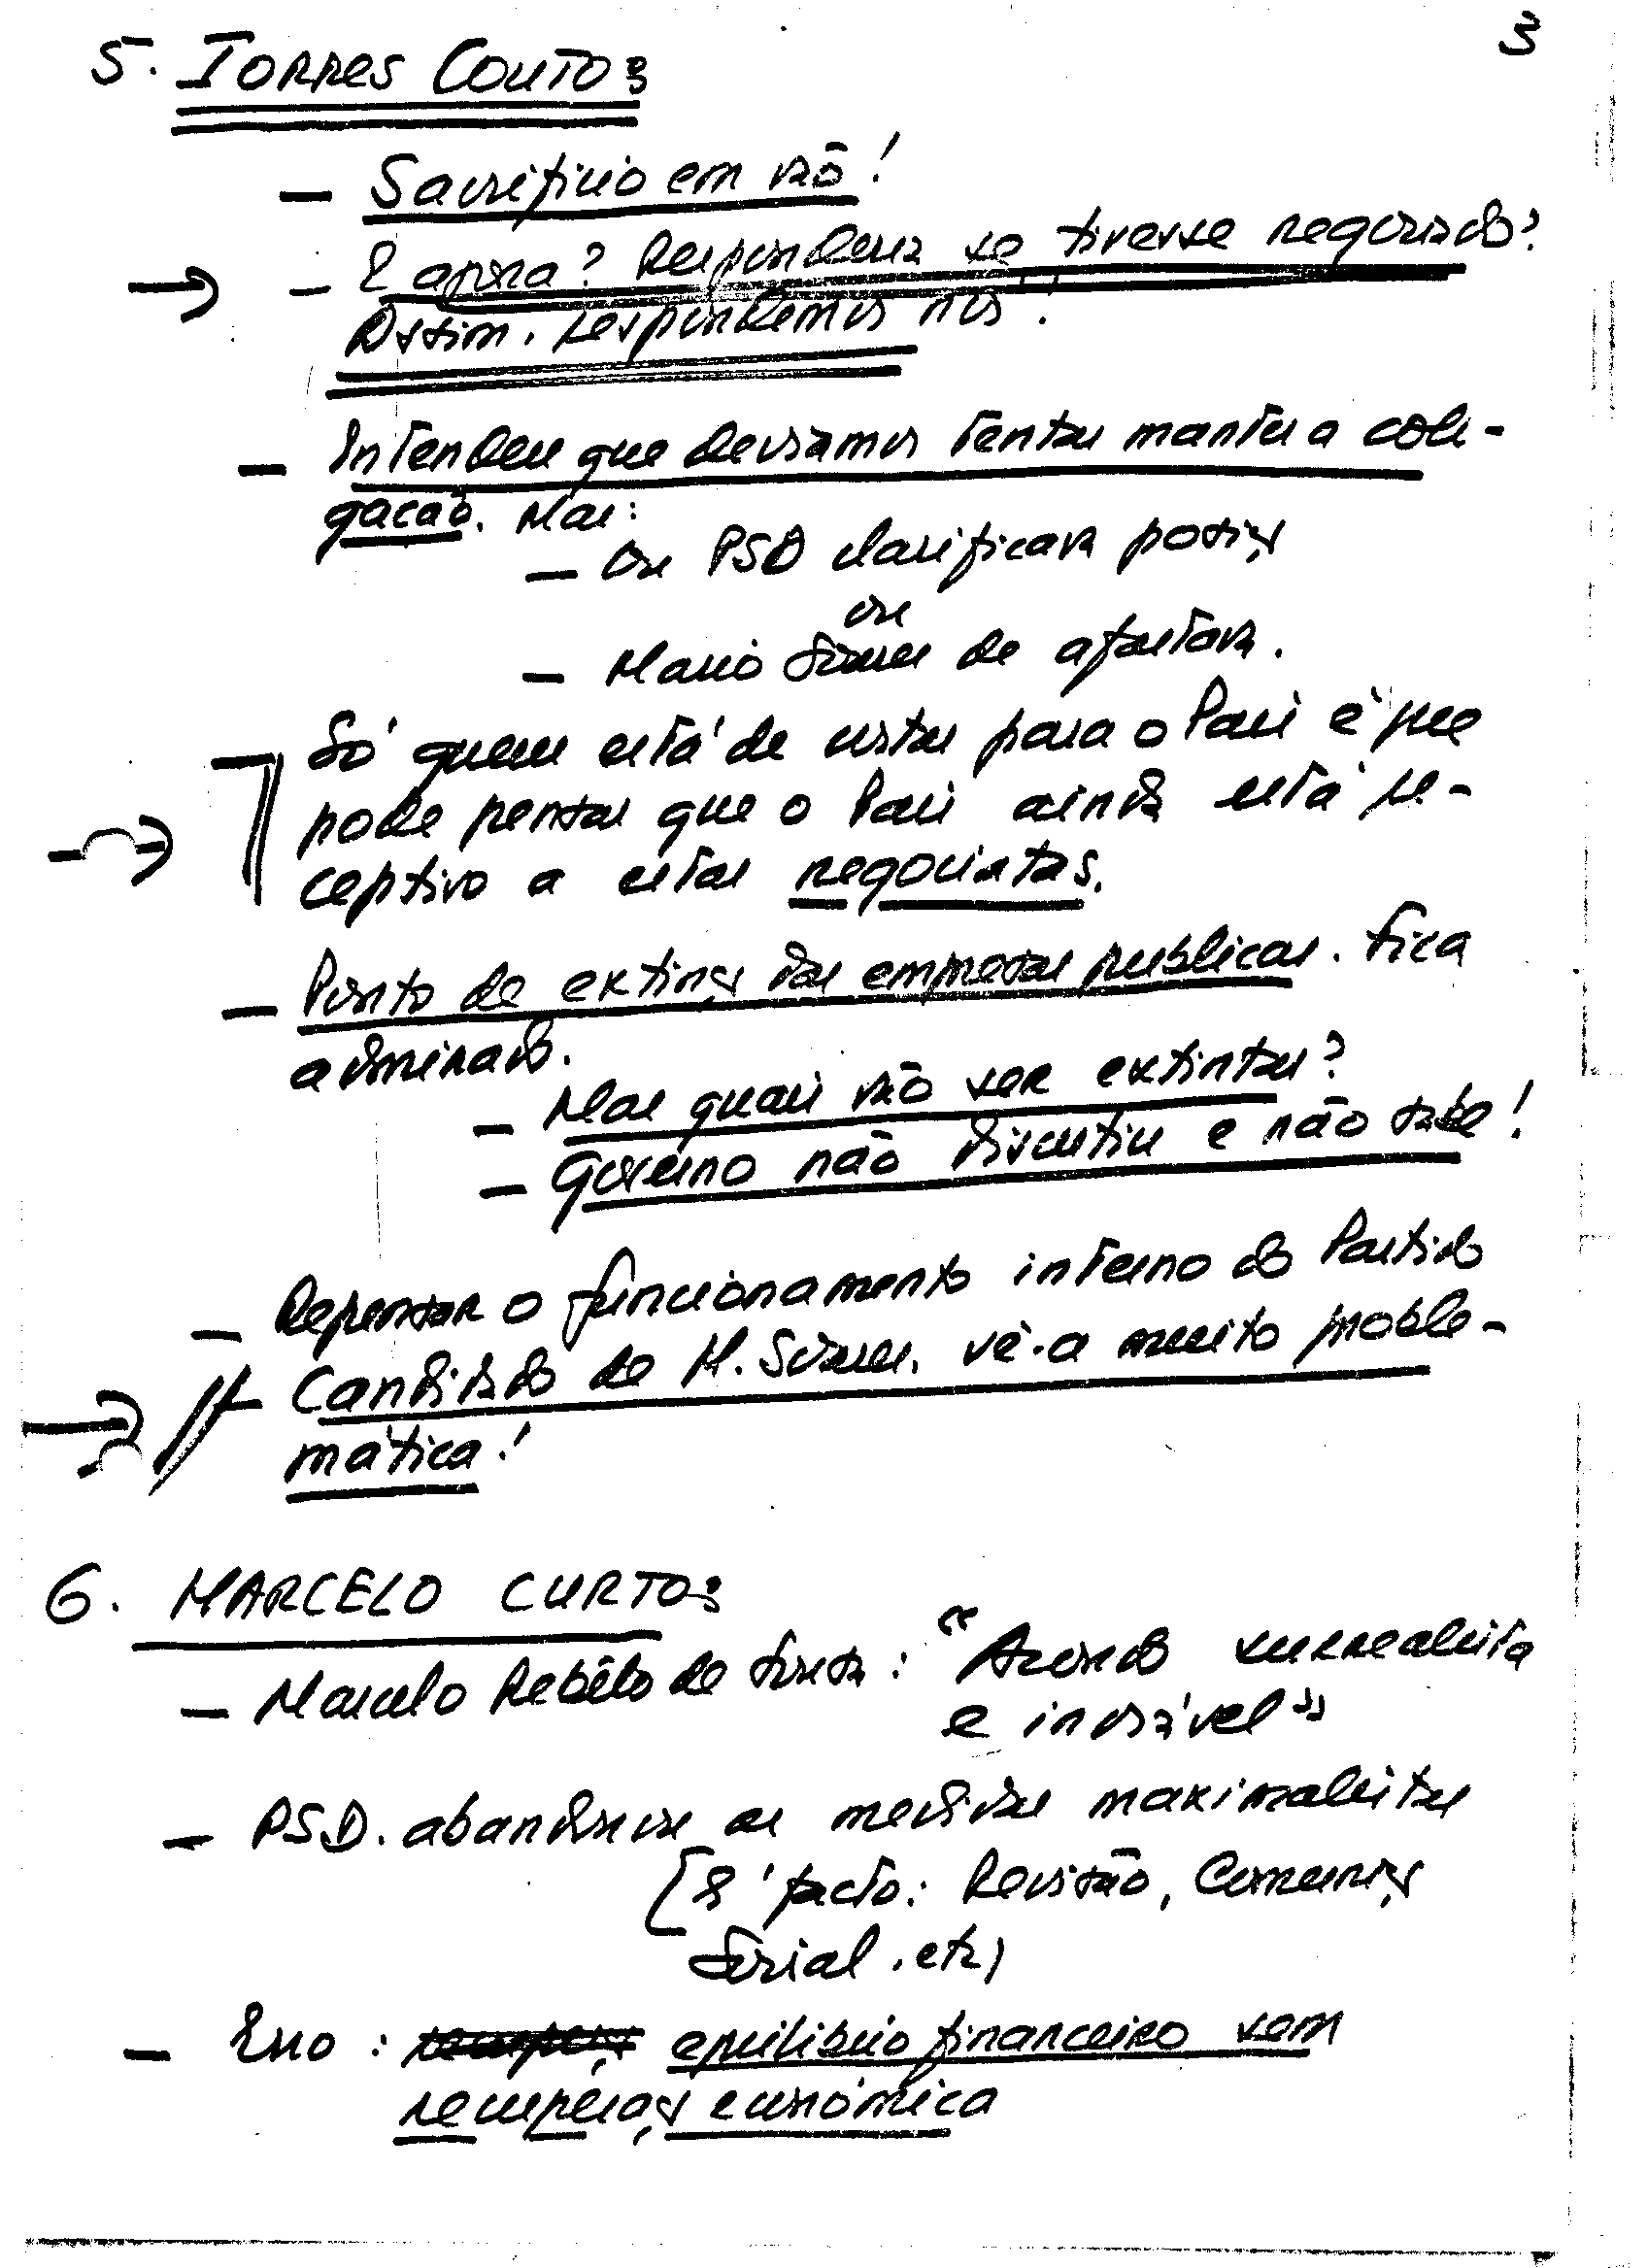 3
5. TORRES COUTO:
— Sacrifício em vão!
— E agora? Responderia se tivesse negociado?
Assim, respondemos nós!
— Entendeu que devíamos tentar manter a coli-
gação. Mas:
— Ou PSD clarificava posição
ou
— Mário Soares se afastava.
— Só quem está de costas para o País é que
pode pensar que o País ainda está re-
ceptivo a estas negociatas.
— Ponto de extinção das empresas publicas. Fica
admirado.
— Mas quais vão ser extintas?
— Governo não discutiu e não sabe!
— Repensar o funcionamento interno do Partido
— Candidado de M. Soares. vê-a muito proble-
mática!
6. MARCELO CURTO:
— Marcelo Rebêlo de Sousa: "Acordo surrealista
e inviável"
— PSD. abandonou as medidas maximalistas
[E' pacto: Revisão, Comunic,
Social. etc)
— Erro: equilibrio financeiro sem
recuperação económica